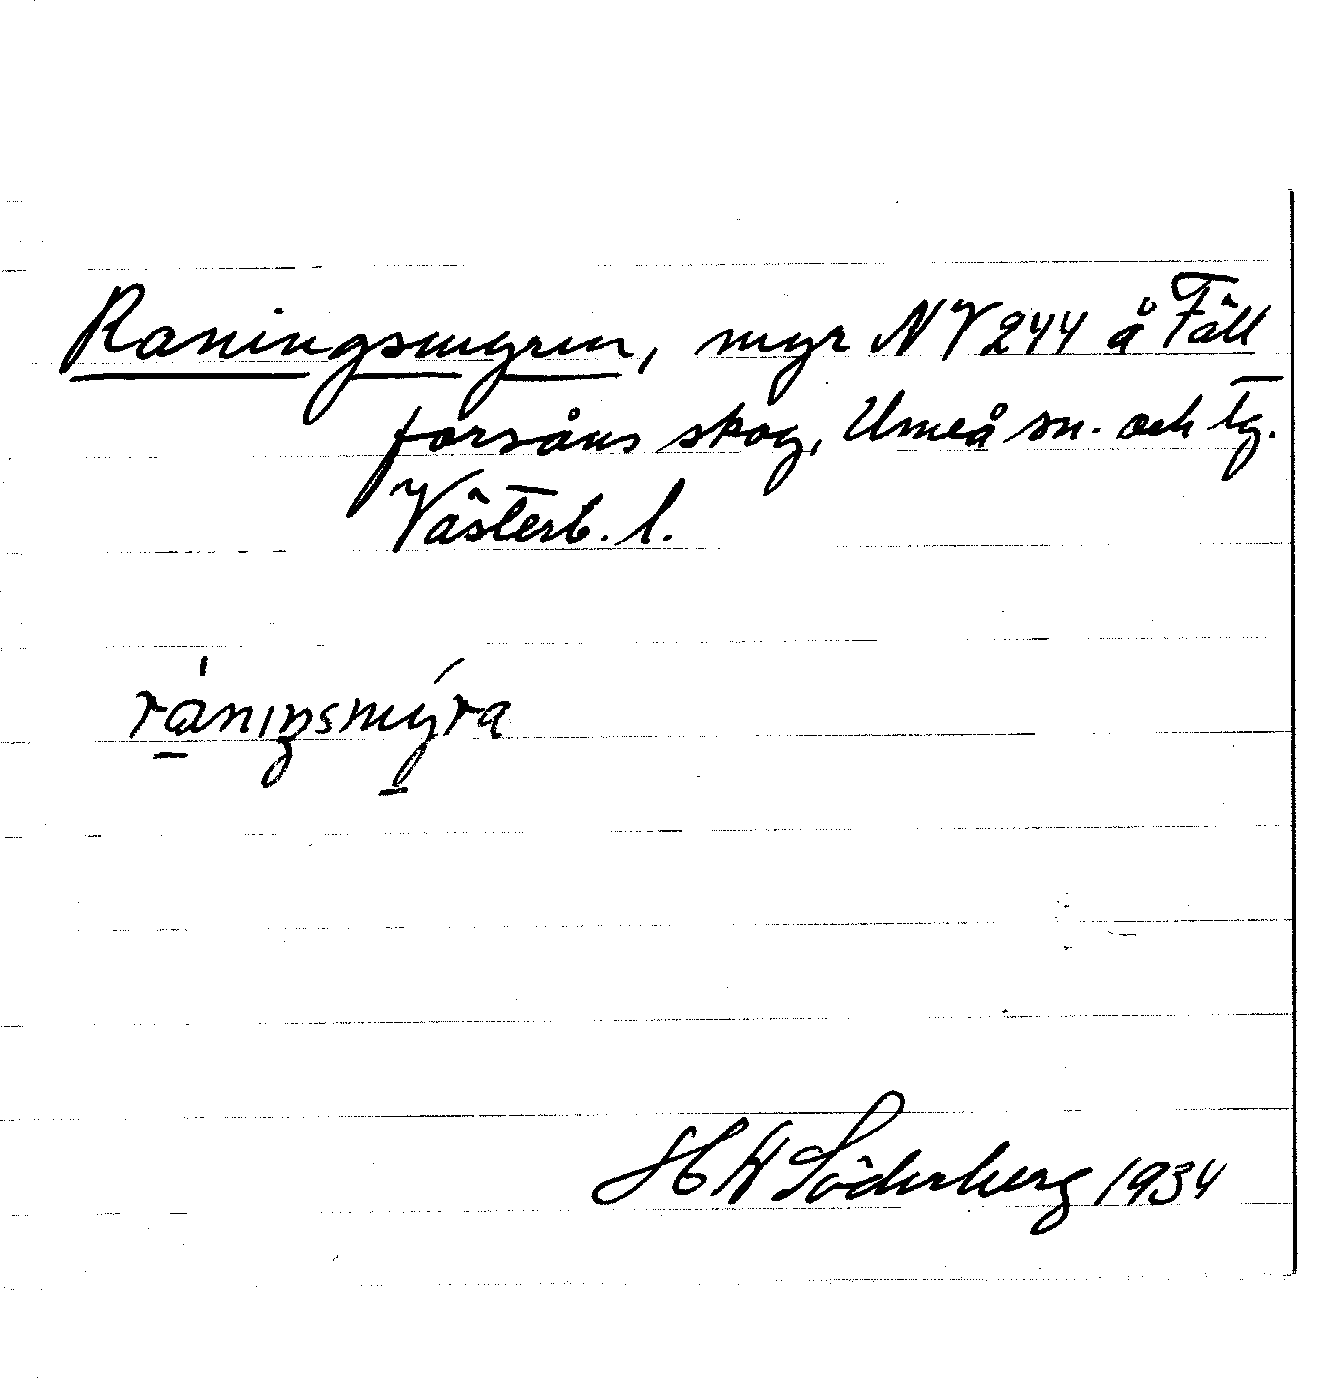 Raningsmyren, myr NV 244 å Fäll
forsåns skog, Umeå sn. och tg.
Västerb. l.
ra̱ningsmy̱ra
H W Söderberg 1934